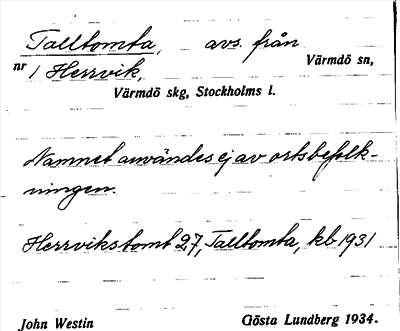 Talltomta, avs. från
nr 1 Herrvik, Värmdö sn,
Värmdö skg, Stockholms l.
Namnet användes ej av ortsbefolk-
ningen.
Herrvikstomt 27, Talltomta, kb 1931
John Westin Gösta Lundberg 1934.